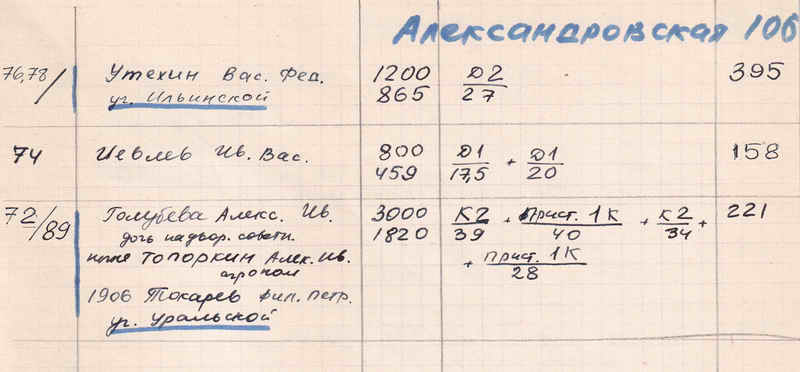 Александровская 106
76,78/ Утехин Вас. Фед. 1200 Д2 395
уг. Ильинской 865 27
74 Иевлев Ив. Вас. 800 Д1 + Д1 158
459 17,5 20
72/89 Голубева Алекс. Ив. 3000 К2 + Прист. 1К + К2 + 221
дочь надвор. советн. 1820 39 40 34
ныне Топоркин Алек. Ив. + Прист. 1К
агроном 28
1906 Токарев Фил. Петр.
уг. Уральской